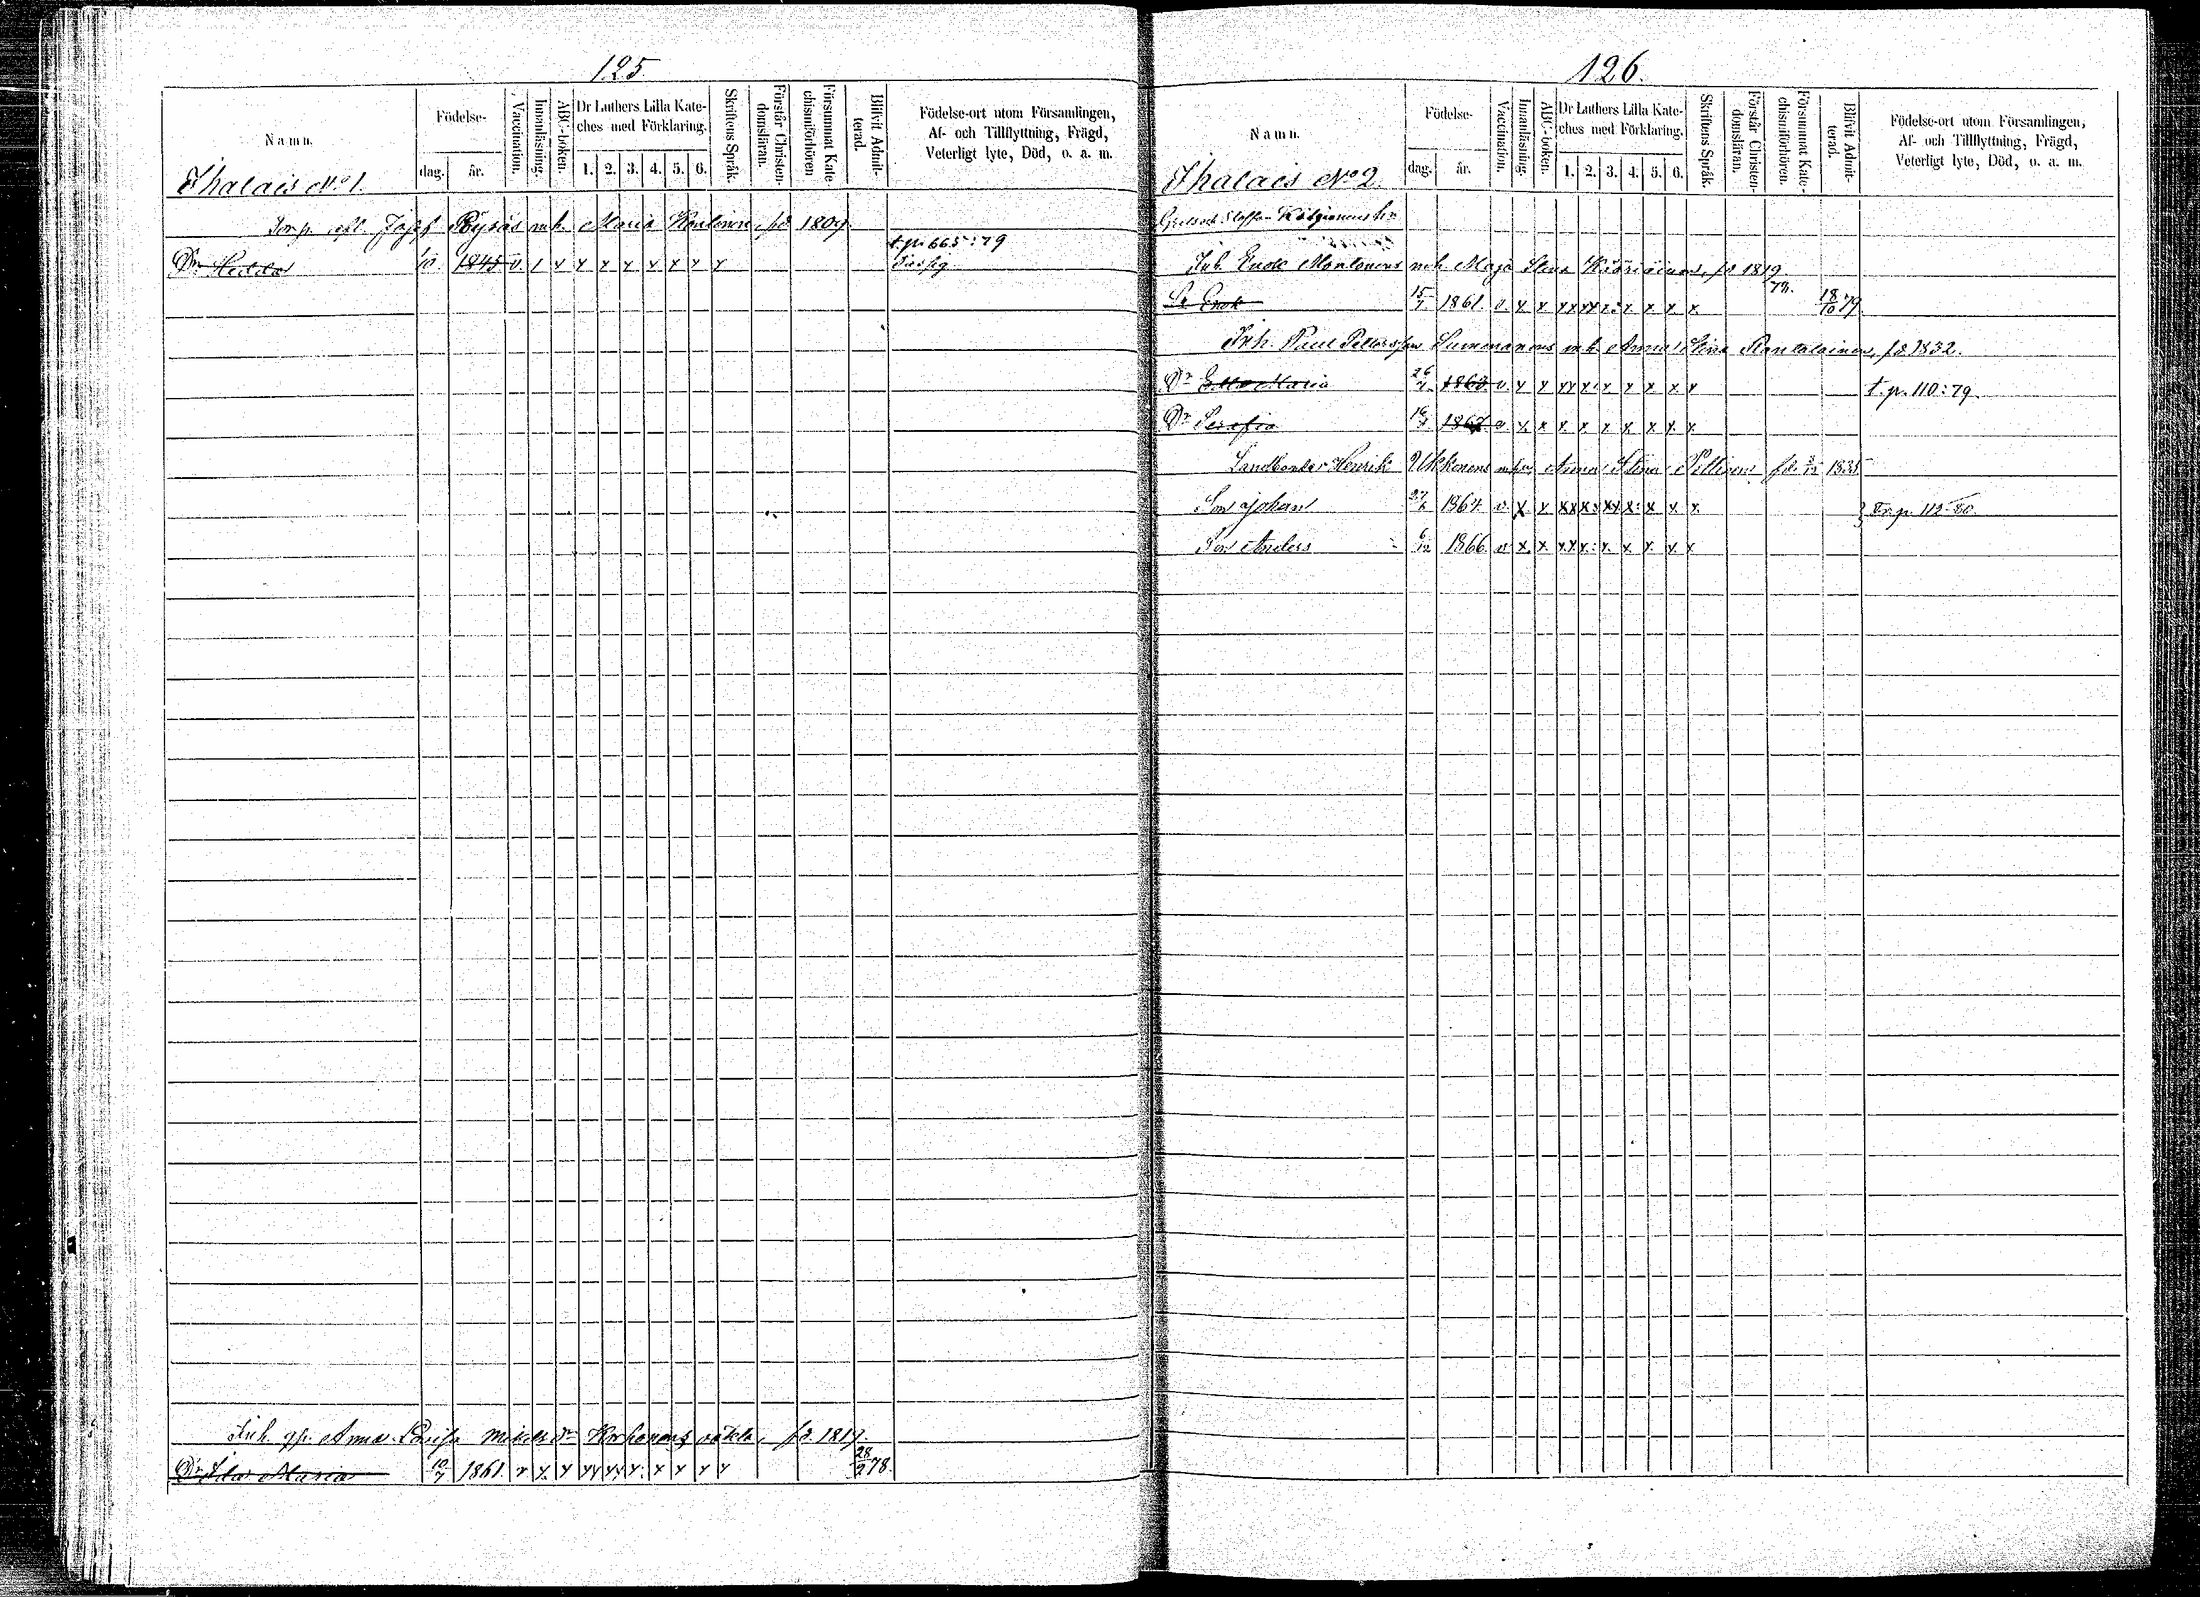 125
Namn.
Födelse-
dag.
år.
Vaccination.
Innanläsning.
ABC-boken.
Dr Luthers Lilla Kate-
ches med Förklaring.
1. 2. 3. 4. 5. 6.
Skriftens Språk.
Förstår Christen-
domsläran.
Försummat Kate
chismiförhören
Blifvit Admit-
terad.
Födelse-ort utom Församlingen,
Af- och Tillflyttning, Frägd,
Veterligt lyte, Död, o. a. m.
Ihalais No 1.
Josef Pöyräs enk. Maria fd 1809.
t. p. 665:79
Dr Hedda 1845 v / x x x x x x x x
Inh. Anna Lovisa Mikels dr Korhonens fd 1817.
Dr Ida Maria 10/7 1861 v x x xx xx x: x x x x 28/2 78.
126.
Namn.
Födelse-
dag.
år.
Vaccination.
Innanläsning.
ABC-boken.
Dr Luthers Lilla Kate-
ches med Förklaring.
1. 2. 3. 4. 5. 6.
Skriftens Språk.
Förstår Christen-
domsläran.
Försummat Kate-
chismiförhören.
Blifvit Admit-
terad.
Födelse-ort utom Församlingen,
Af- och Tillflyttning, Frägd,
Veterligt lyte, Död, o. a. m.
Ihalais No 2.
Inh. Enok Montonens enk. Maja Stina Kääriäinen, fd 1819
Sn Enok 15/7 1861. v. x x xx xx x: x x x x 78. 18/10 79.
Inh. Paul Petterson Summanens enk. Anna Stina Rantalainen, fd. 1832.
Dr Maria 26/7 v x x xx x: x x x x x t. p. 110:79.
Dr Serafia v. x x x x x x x x x
Landbonden Henrik Ukkonens Anna Stina fd. 1835
Son Johan 1864. v. x x xx x: xx x: x x x } Tr. p. 112-80.
Son Anders 6/12 1866 v x x xx x: x. x x x x